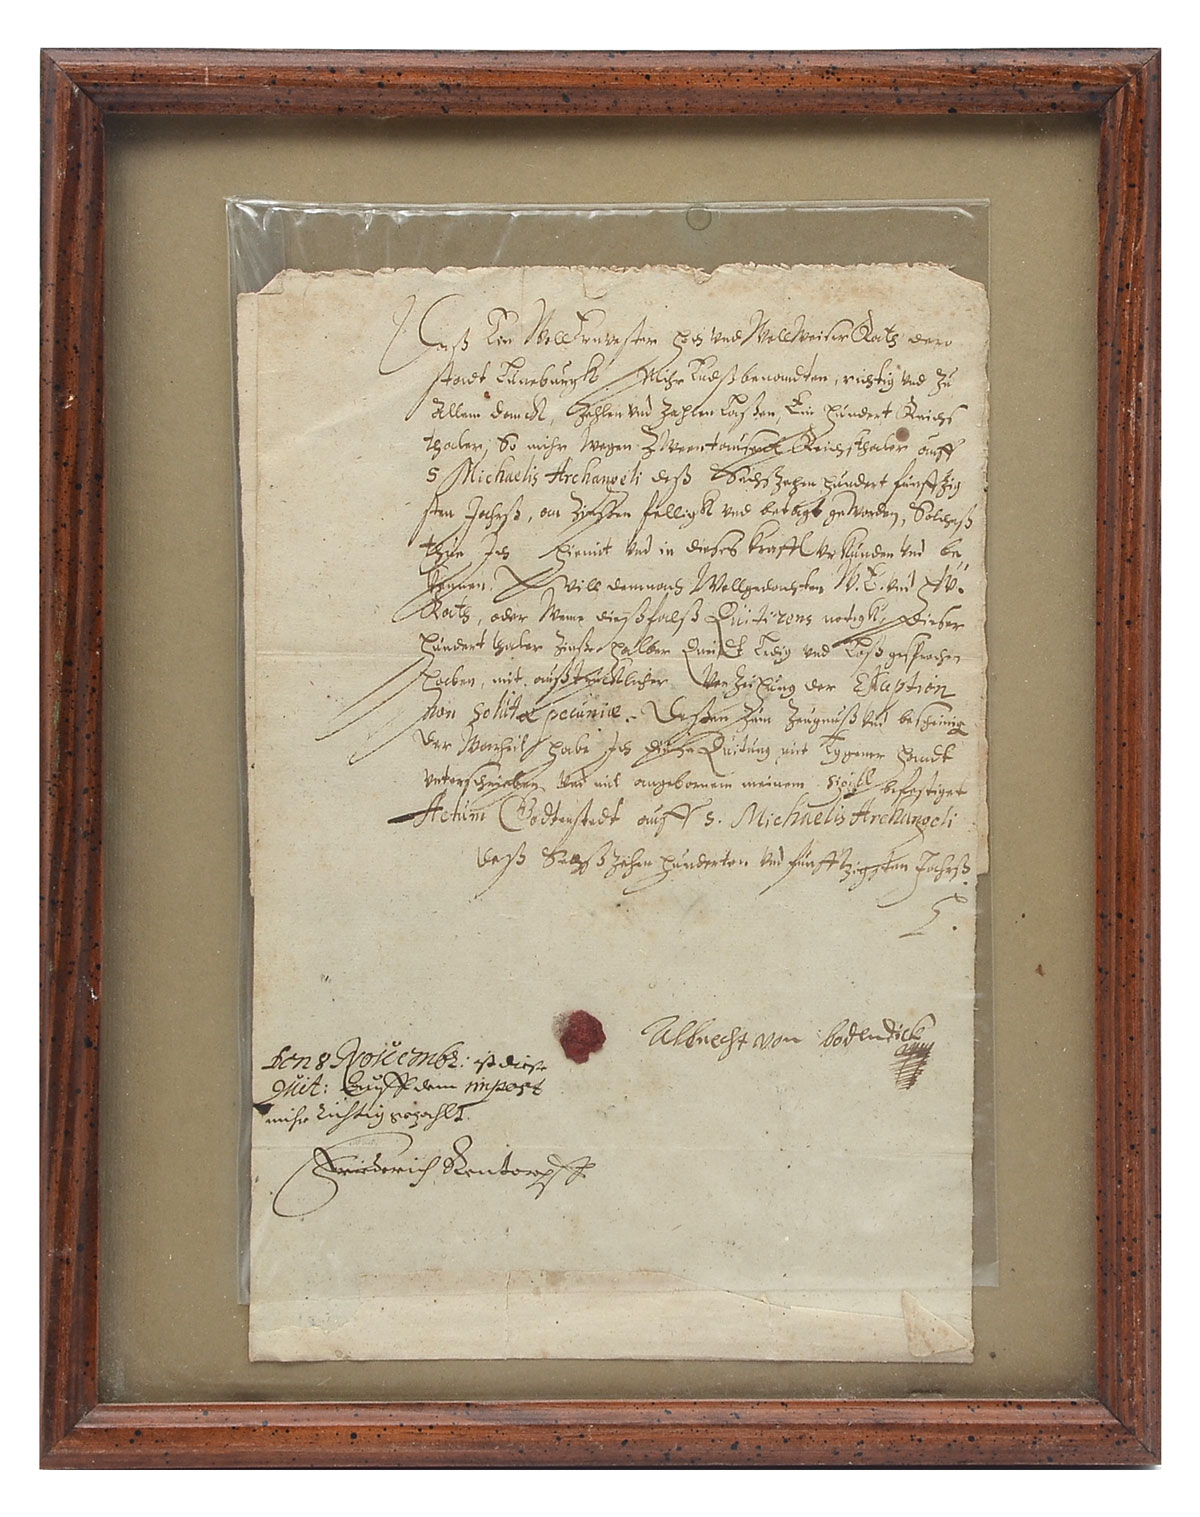 Daß Ein WollErnvester Hoch und WollWeiser Rath dero
stadt Lüneburgk Mihr Endßbenandten, richtig und zu
Allem danck, Zehlen und zahlen Laßen, Ein hundert Reichs
thaler, So mihr wegen Zweentausend Reichsthaler auff
S Michaelis Archangeli deß Sechszehen hundert funfftzig
sten Jahrß, an Zinßen felligk und betagt geworden, Solcheß
thue Ich hiemit und in dieses krafft urkunden und be
kennen, Will demnach Wollgedachten W. E. und
Rath, oder Weme dießfalß Quitirens notigk, Dieser
hundert thaler Zinße halber Quidt Ledig und Loß gesprochen
haben, mit außtrücklicher Verzeihung der Exception
non solutæ pecuniæ. Deßen Zum Zeugnuß und bescheinig
der Warheit habe Ich diese Quitung mit Eygener handt
unterschrieben und mit angebornem meinem sigill befestiget
Actum Bodenstedt auff S. Michaelis Archangeli
deß Sechßzehen hunderten und funfftzigsten Jahrß.
Albrecht von bodendick
Den 8 Novemb: ist diese
quit: auff dem impost
mihr richtig bezahlt.
Friederich Rentorpff.